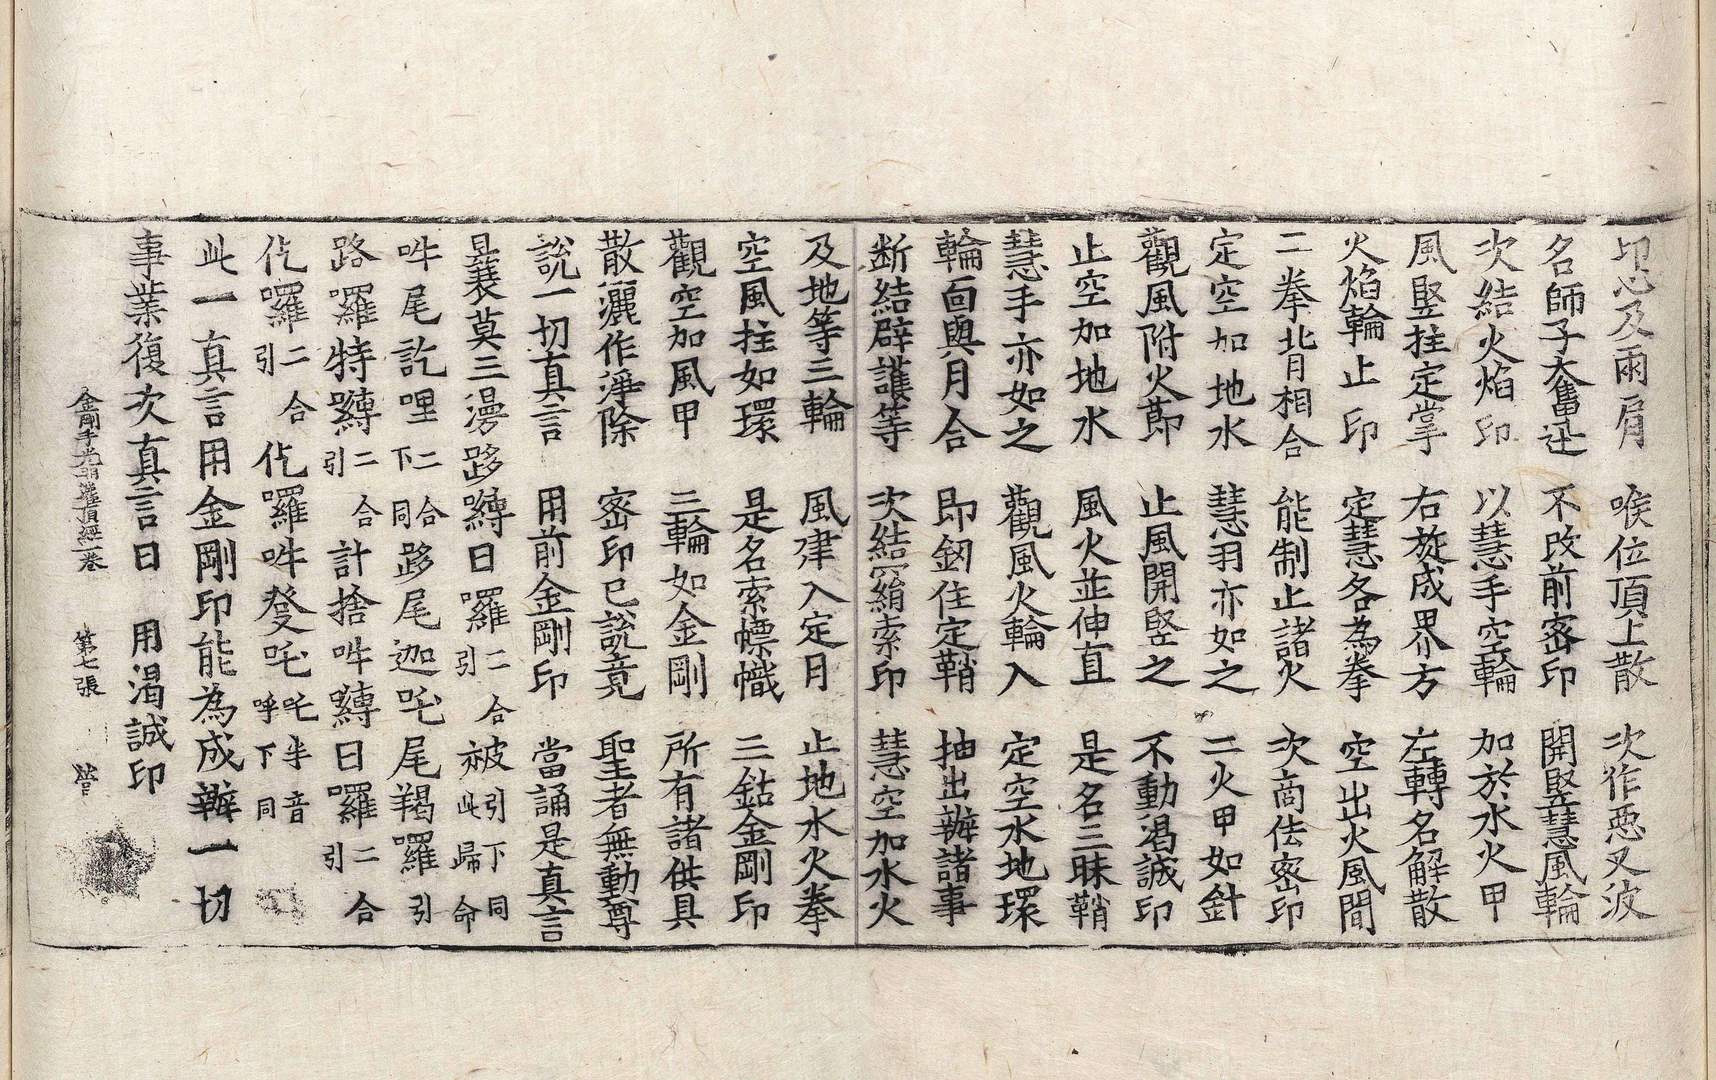 印心及兩肩　喉位頂上散　次作惡叉波
名師子大奮迅　不改前密印　開竪慧風輪
次結火焰印　以慧手空輪　加於水火甲
風竪拄定掌　右旋成界方　左轉名解散
火焰輪止印　定慧各為拳　空出火風間
二拳背相合　能制止諸火　次商佉密印
定空加地水　慧羽亦如之　二火甲如針
觀風附火節　止風開竪之　不動渴誠印
止空加地水　風火並伸直　是名三昧鞘
慧手亦如之　觀風火輪入　定空水地環
輪面與月合　即釰住定鞘　抽出辦諸事
断結辟護等　次結羂索印　慧空加水火
及地等三輪　風建入定月　止地水火拳
空風拄如環　是名索幖幟　三鈷金剛印
觀空加風甲　三輪如金剛　所有諸供具
散灑作淨除　密印已說竟　聖者無動尊
說一切真言　用前金剛印　當誦是真言
曩莫三滿跢嚩日囉二合引被引下同亦此歸命
吽尾訖哩二合下同跢尾迦吒尾羯囉引
路羅特嚩二合引計捨吽嚩日囉二合引
佉囉二合引佉囉吽發吒吒半音呼下同
此一真言用金剛印能為成辦一切
事業復次真言曰　用渴誠印
金剛手光明灌頂經一卷　第七張　營